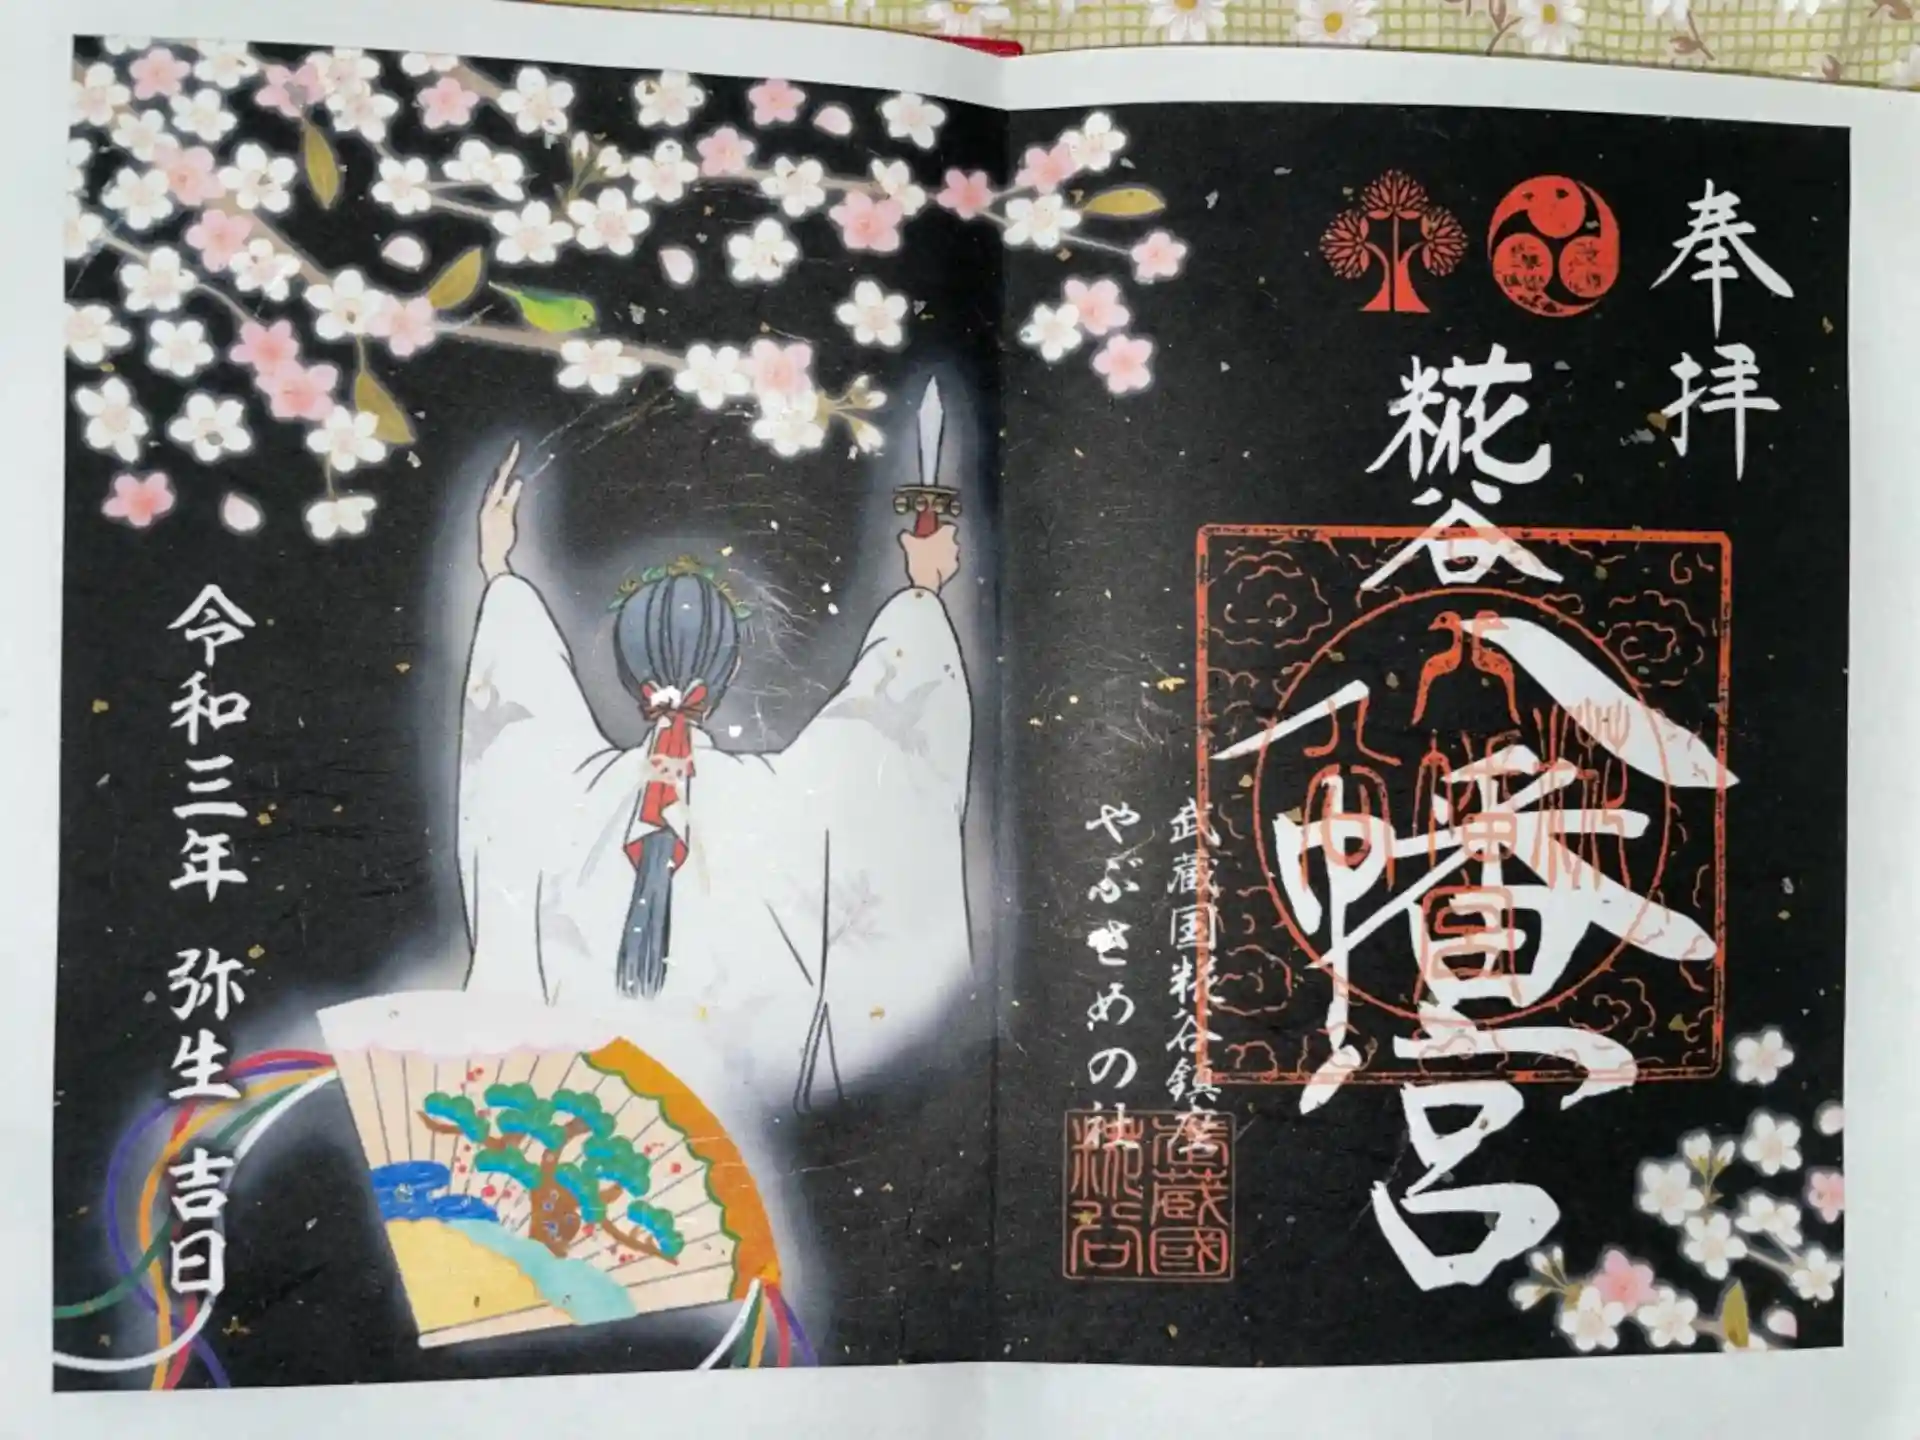 奉拝
糀谷
八幡宮
武蔵国糀谷鎮座
やぶさめの社
武蔵國
糀谷
令和三年 弥生 吉日